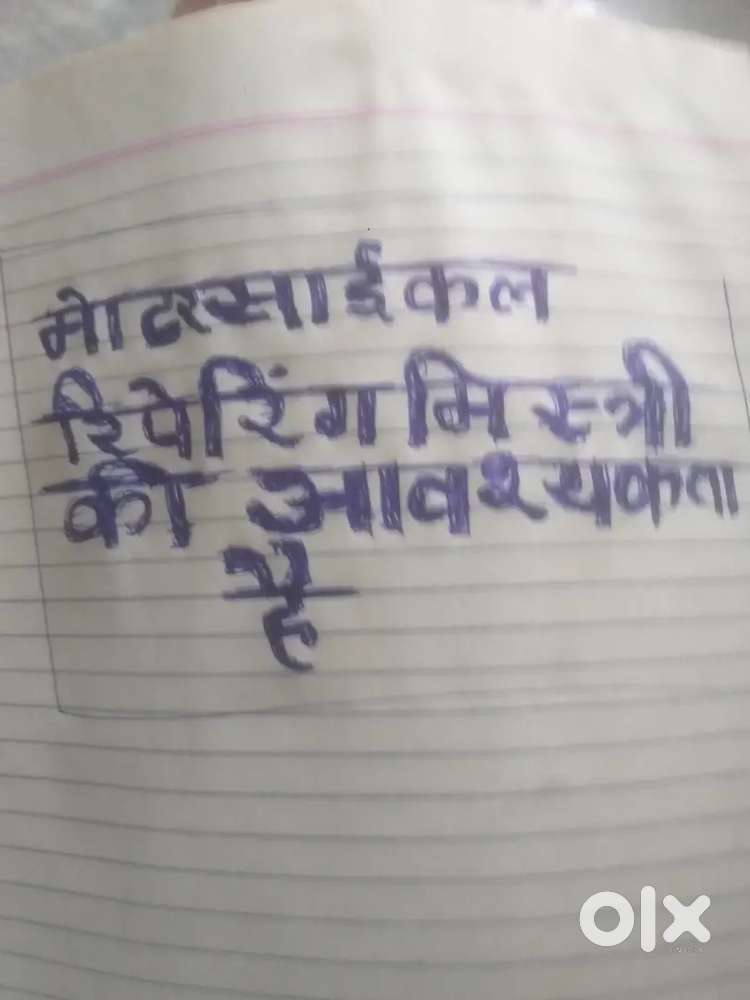 मोटरसाईकल
रिपेरिंग मिस्त्री
की आवश्यकता
है
olx
INDIA